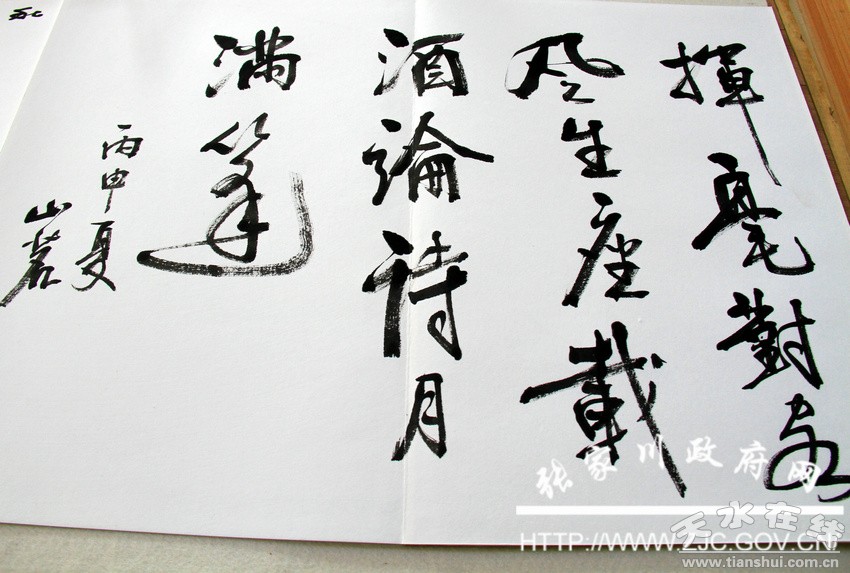 揮毫對客
風生座載
酒論詩月
滿篷
丙申夏
山
张家川政府网
HTTP://WWW.ZJC.GOV.CN/
天水在线
www.tianshui.com.cn